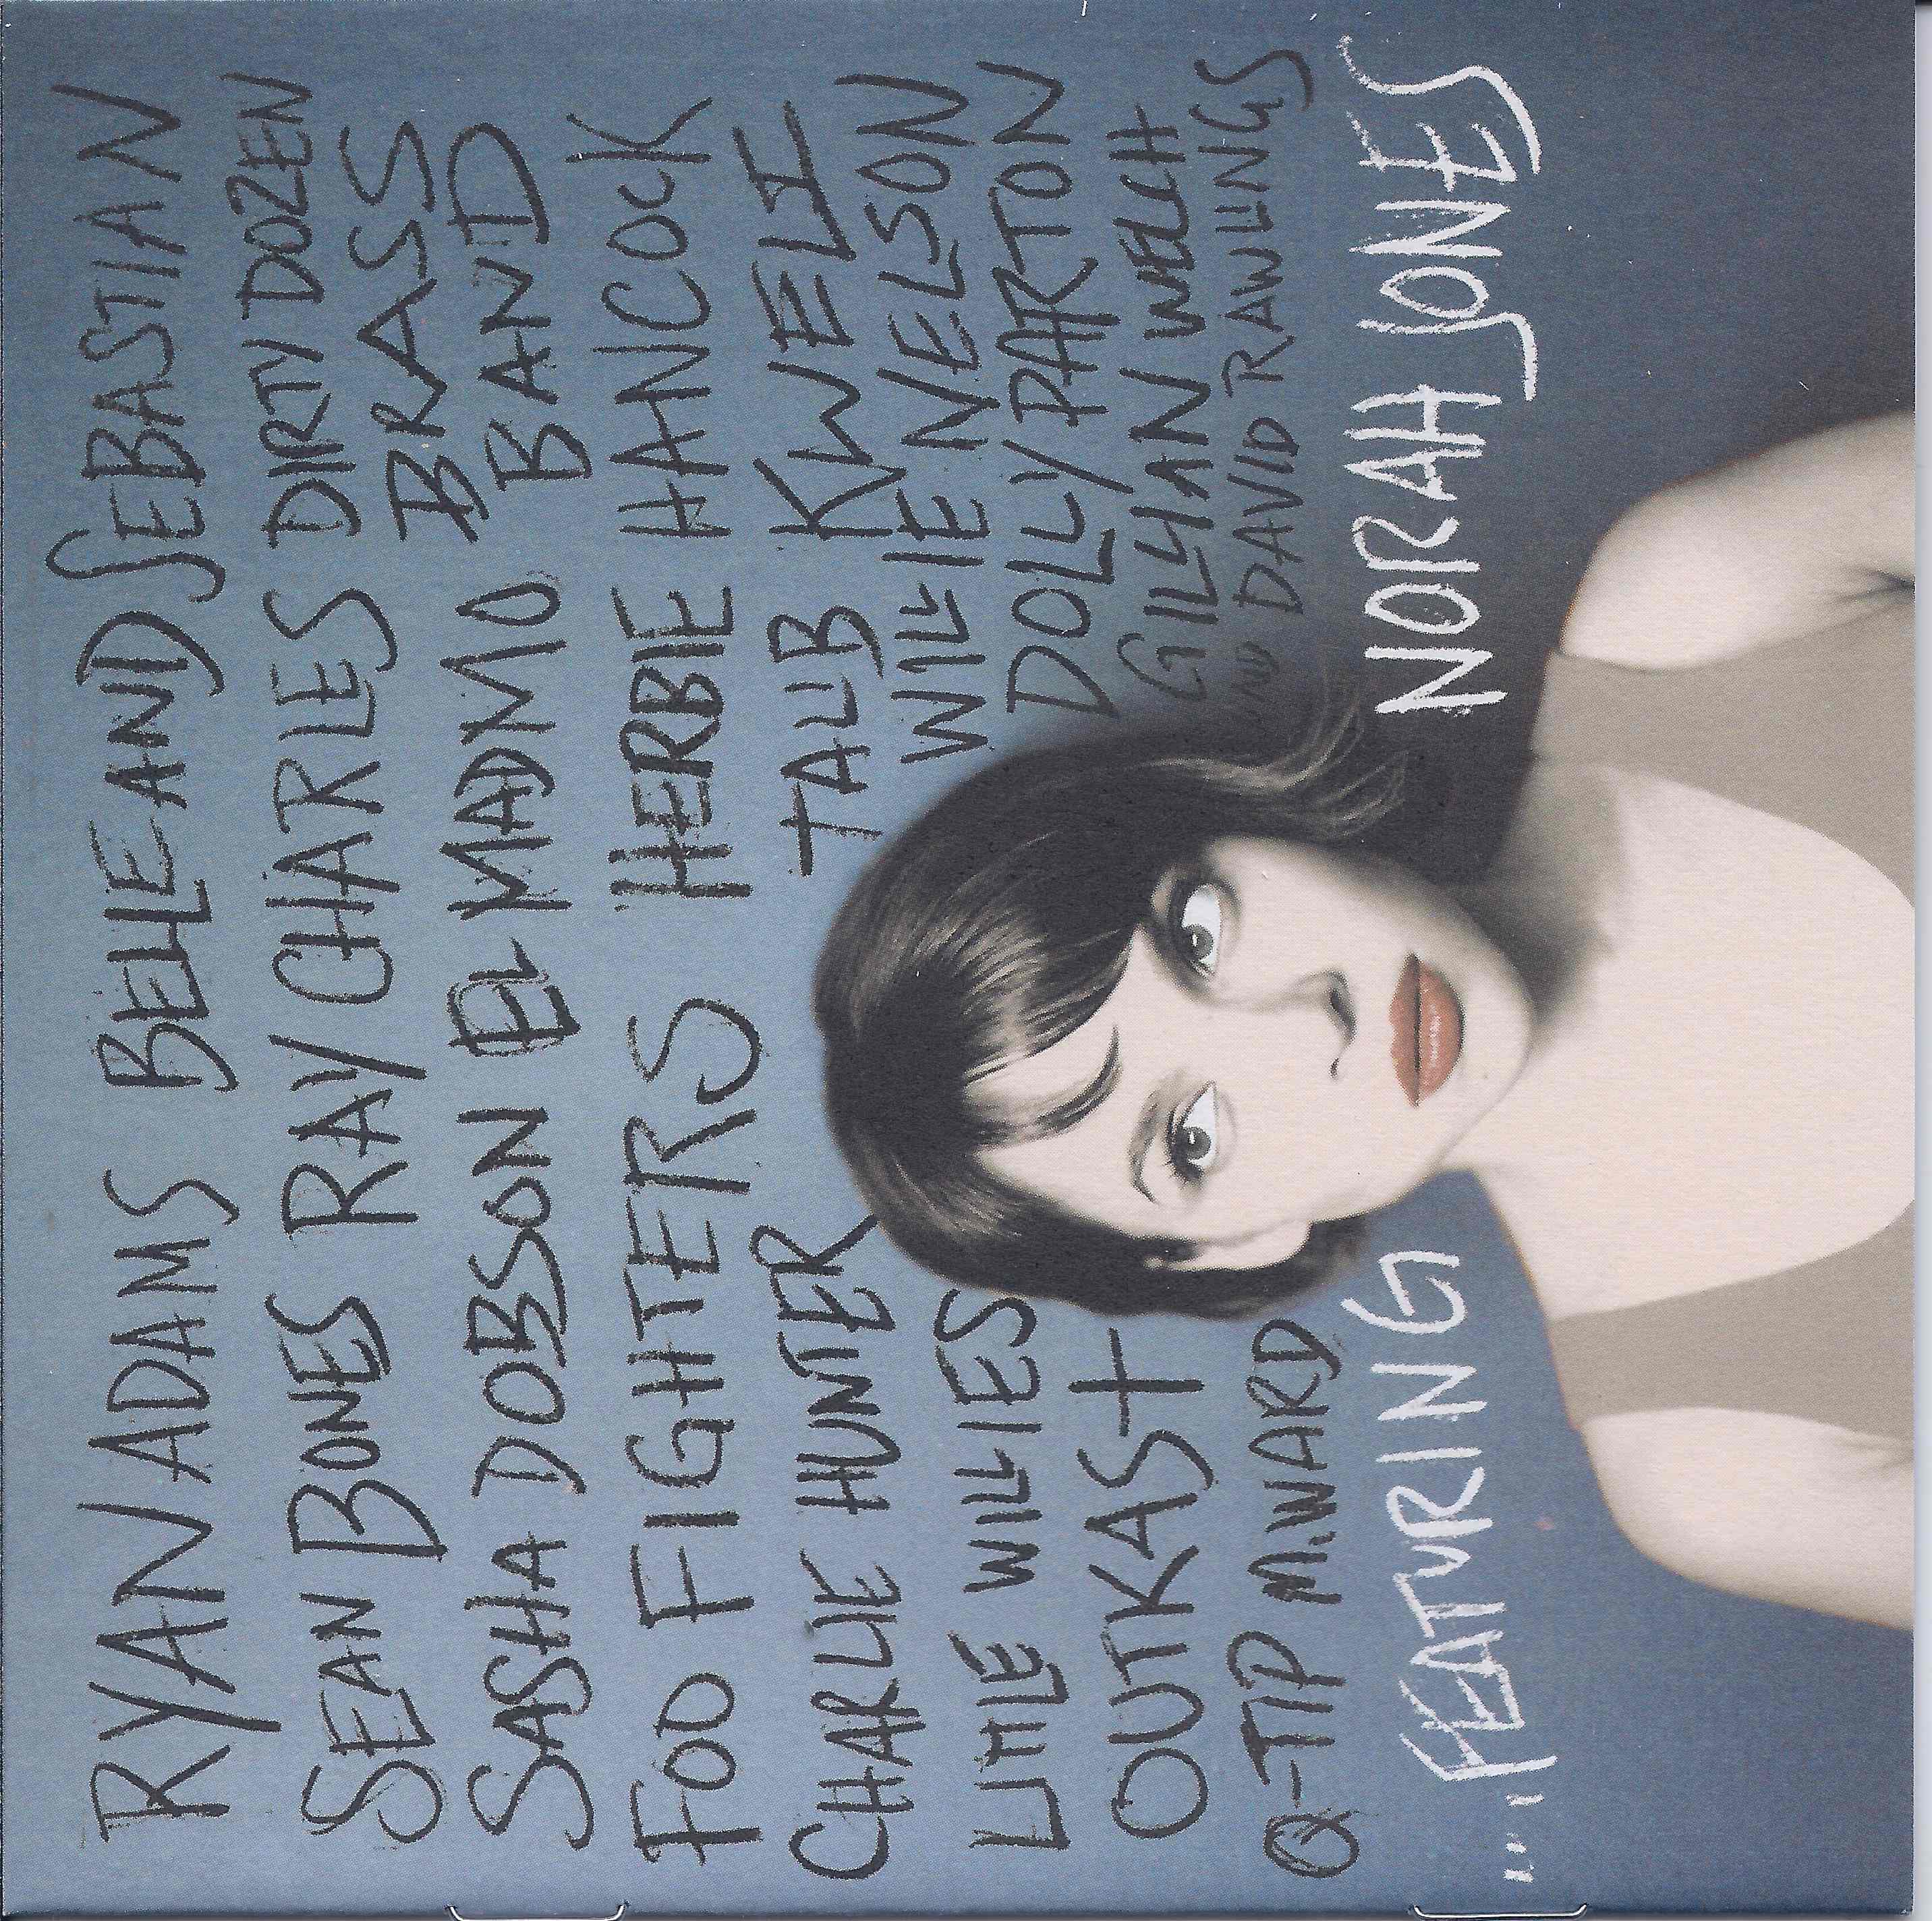 RYAN ADAMS BELLE AND SEBASTIAN
SEAN BONES RAY CHARLES DIRTY DOZEN
BRASS
SASHA DOBSON EL MADMO BAND
FOO FIGHTERS HERBIE HANCOCK
CHARLIE HUNTER TALIB KWELI
LITTLE WILLIES WILLIE NELSON
OUTKAST DOLLY PARTON
Q-TIP M.WARD GILLIAN WELCH
AND DAVID RAWLINGS
...FEATURING NORAH JONES